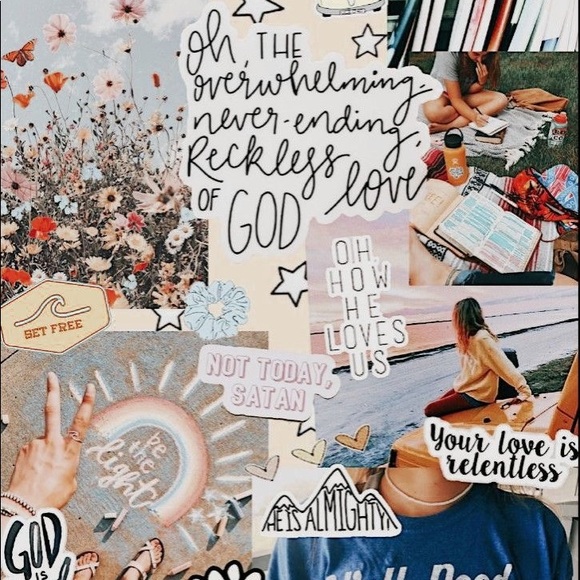 Oh, THE
overwhelming,
never-ending,
Reckless
love
OF GOD
OH,
HOW
HE
LOVES
US
SET FREE
NOT TODAY,
SATAN
be
the
light
Your love is
relentless
HE IS ALMIGHTY
GOD
IS